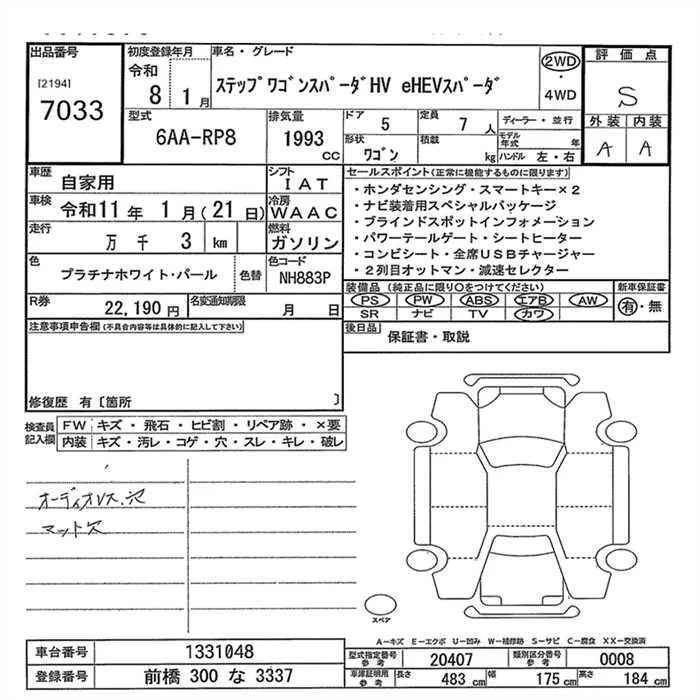 出品番号
[2194]
7033
初度登録年月
令和
8 1月
車名・グレード
ステップワゴンスパーダHV eHEVスパーダ
2WD
・
4WD
評価点
S
外装 内装
A A
型式
6AA-RP8
排気量
1993
CC
ドア 5
定員 7 人
形状
ワゴン
積載
kg
ディーラー・並行
モデル
年式 年
ハンドル 左・右
車歴 自家用
シフト
IAT
車検 令和11年 1月(21日)
冷房
WAAC
走行 万 千 3 km
燃料
ガソリン
色 プラチナホワイト・パール
色替
色コード
NH883P
R券 22,190 円
名変通知期限 月 日
セールスポイント(正常に機能するものに限ります)
・ホンダセンシング・スマートキー×2
・ナビ装着用スペシャルパッケージ
・ブラインドスポットインフォメーション
・パワーテールゲート・シートヒーター
・コンビシート・全席USBチャージャー
・2列目オットマン・減速セレクター
装備品(純正品に限り○をつけてください)
新車保証書
PS PW ABS エアB AW
有・無
SR ナビ TV カワ
後日品
保証書・取説
注意事項申告欄(不具合内容等は具体的に記入して下さい)
修復歴 有〔箇所 〕
検査員
記入欄
FW キズ・飛石・ヒビ割・リペア跡・×要
内装 キズ・汚レ・コゲ・穴・スレ・キレ・破レ
オーディオレス.穴
マット欠
スペア
A-キズ E-エクボ U-凹み W-補修跡 S-サビ C-腐食 XX-交換済
車台番号 1331048
登録番号 前橋 300 な 3337
型式指定番号
参考
20407
類別区分番号
参考
0008
車庫証明用
参考
長さ 483 cm
幅 175 cm
高さ 184 cm